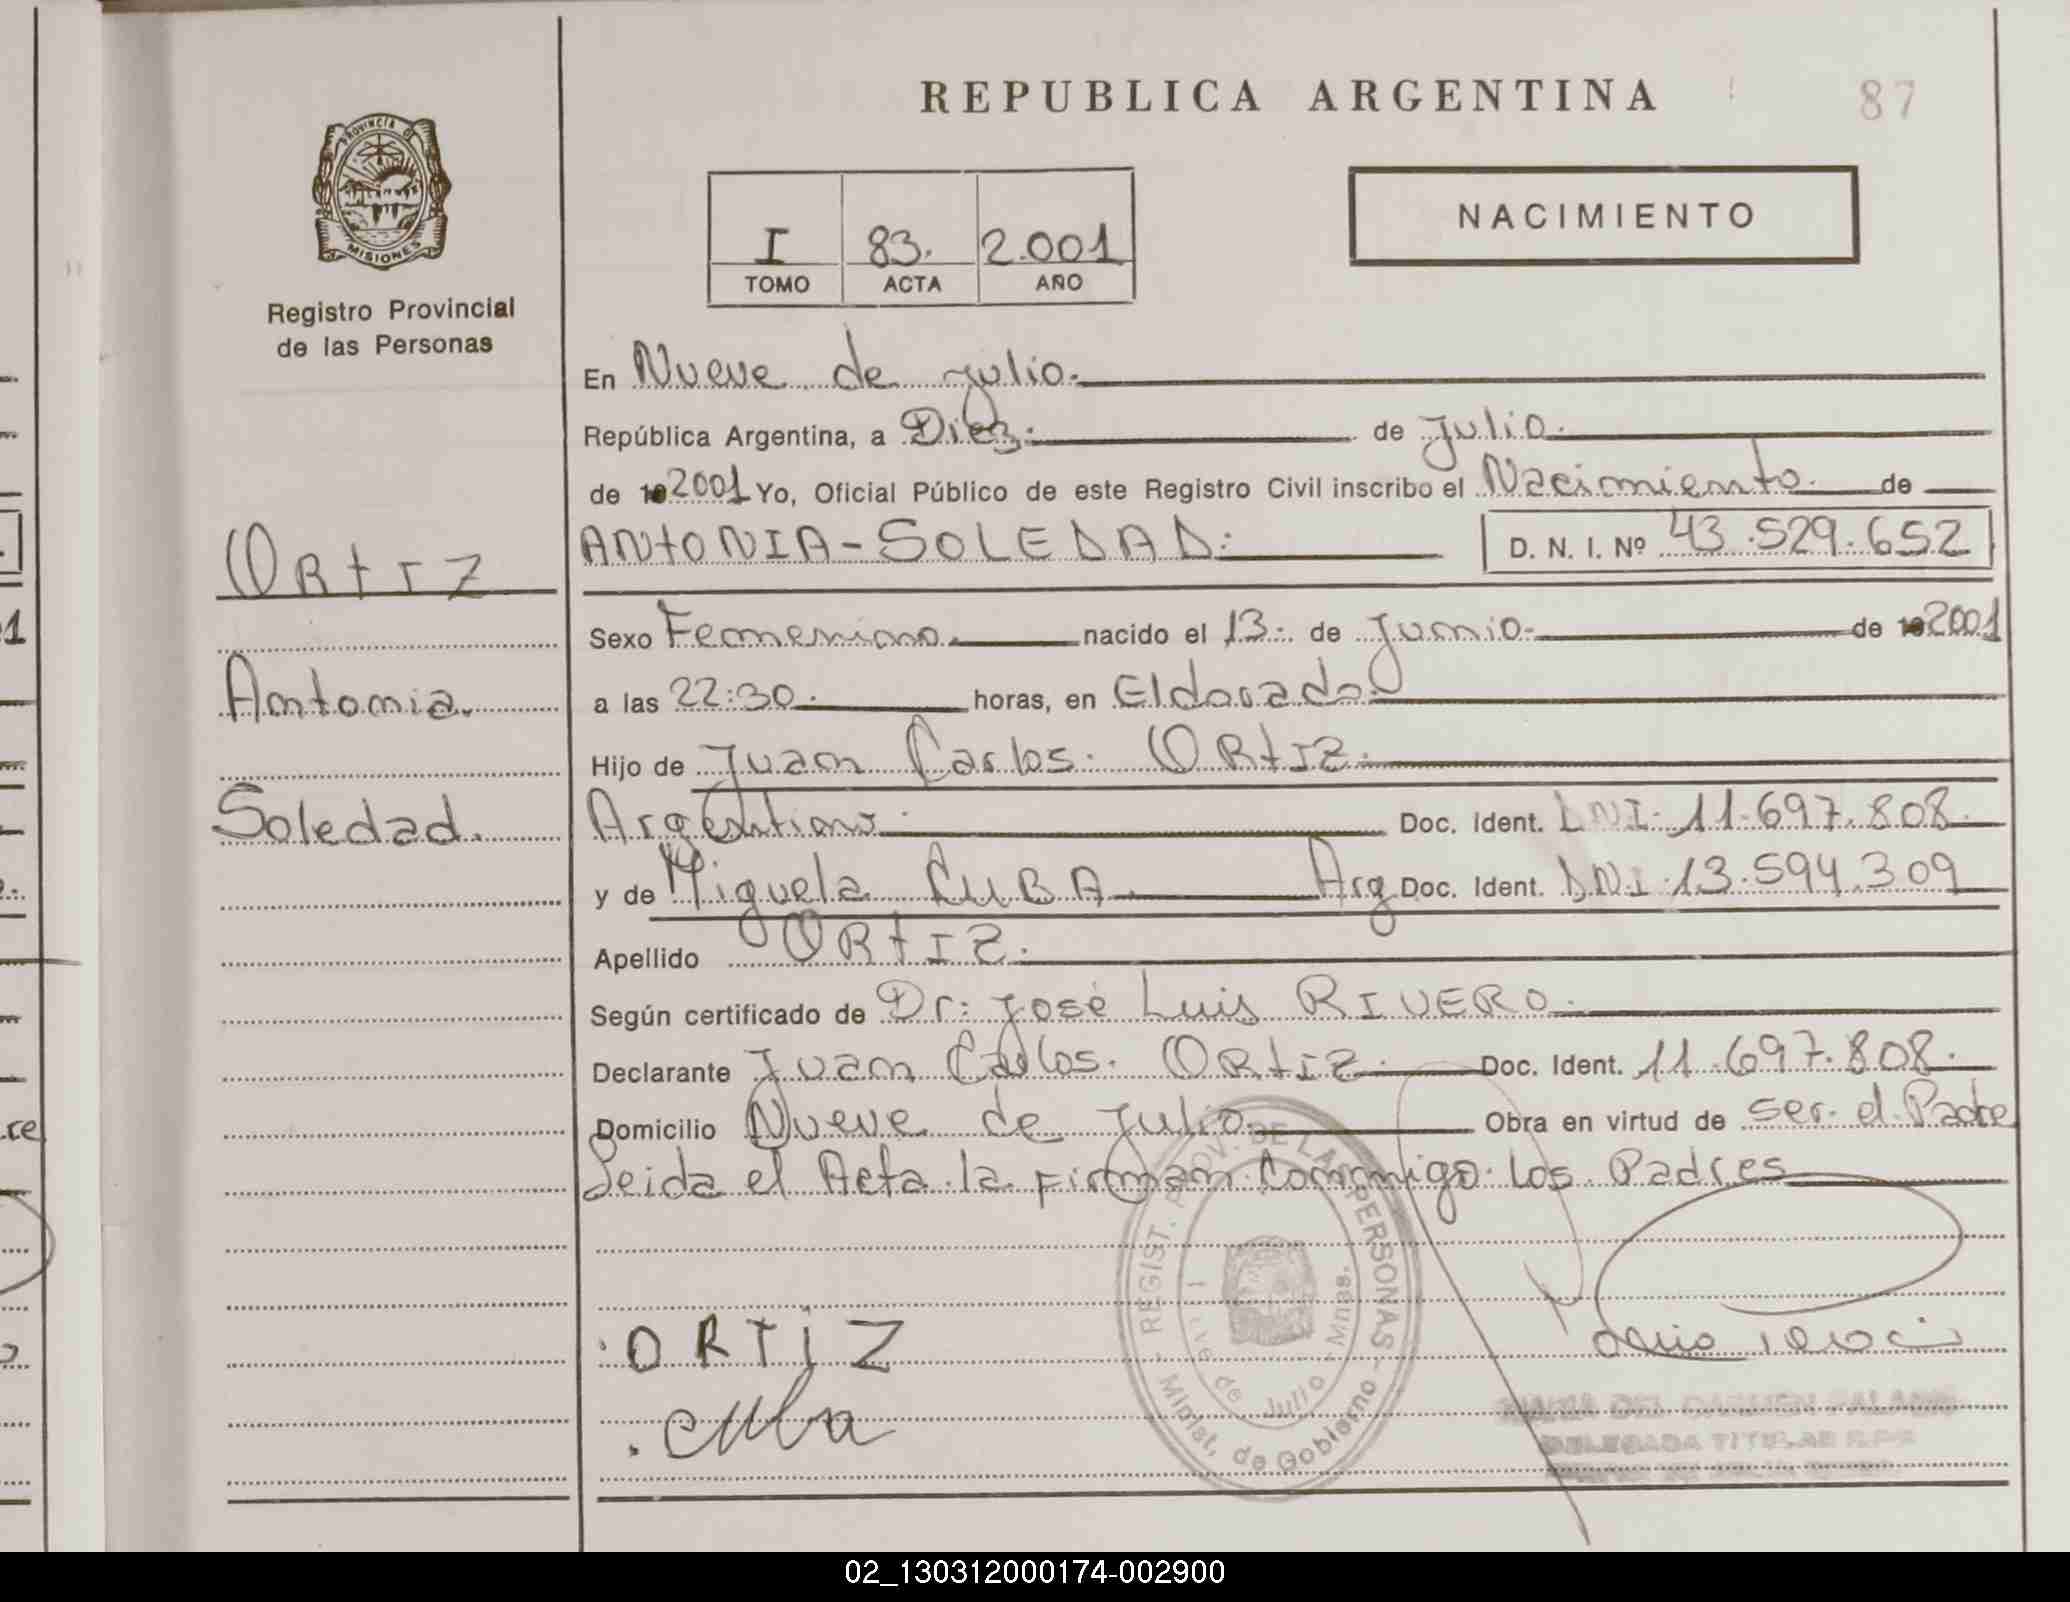 REPUBLICA ARGENTINA
87
PROVINCIA DE
MISIONES
Registro Provincial
de las Personas
I 83. 2.001
TOMO ACTA AÑO
NACIMIENTO
En Nueve de Julio.
República Argentina, a Diez. de Julio.
de 2001 Yo, Oficial Público de este Registro Civil inscribo el Nacimiento de
ANTONIA-SOLEDAD: D. N. I. Nº 43.529.652
ORTIZ
Sexo Femenino. nacido el 13. de Junio. de 2001
Antonia.
a las 22:30. horas, en Eldorado.
Hijo de Juan Carlos. ORTIZ.
Soledad.
Argentino. Doc. Ident. DNI. 11.697.808.
y de Miguela CUBA. Arg Doc. Ident. DNI. 13.594.309
Apellido ORTIZ.
Según certificado de Dr: José Luis RIVERO.
Declarante Juan Carlos. ORTIZ. Doc. Ident. 11.697.808.
Domicilio Nueve de Julio. Obra en virtud de ser el Padre
Leida el Acta la Firman Conmigo los Padres
REGIST. PROV. DE LAS PERSONAS
Minist. de Gobierno
de Julio - Mnes.
. ORTIZ
. Cuba
MARIA DEL CARMEN
DELEGADA TITULAR R.P.P.
02_130312000174-002900